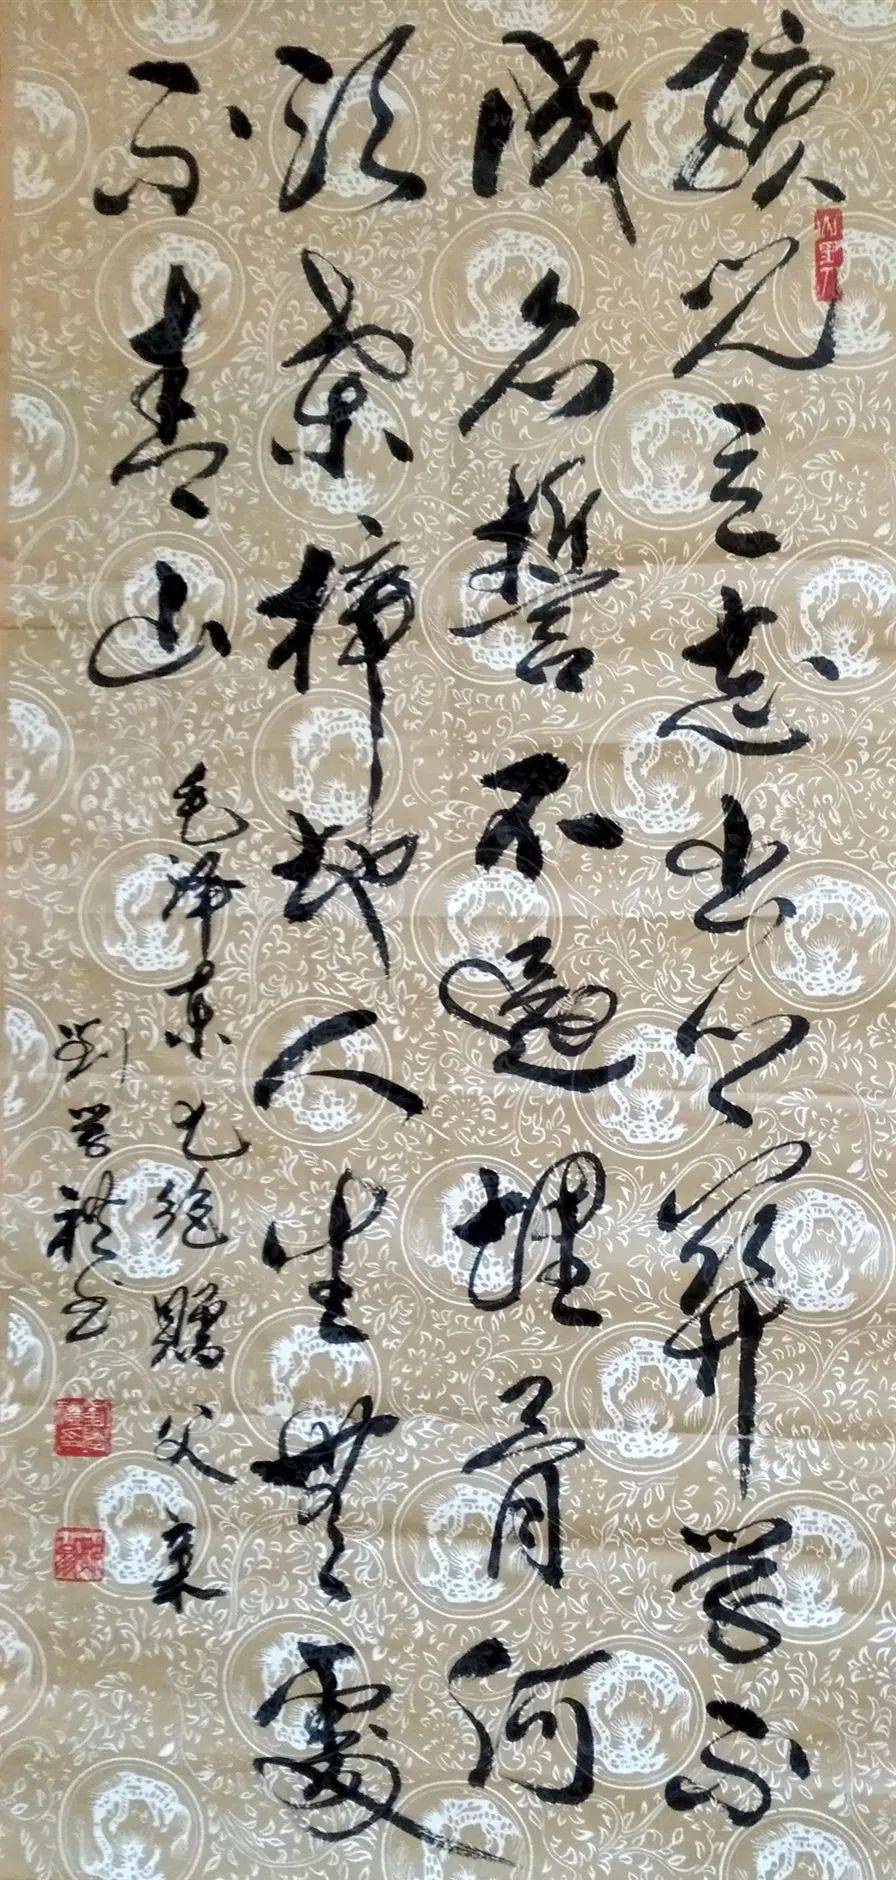 孩兒立志出乡關学不
成名誓不還埋骨何
须桑梓地人生無處
不青山
毛泽东七绝赠父亲
劉学禮书